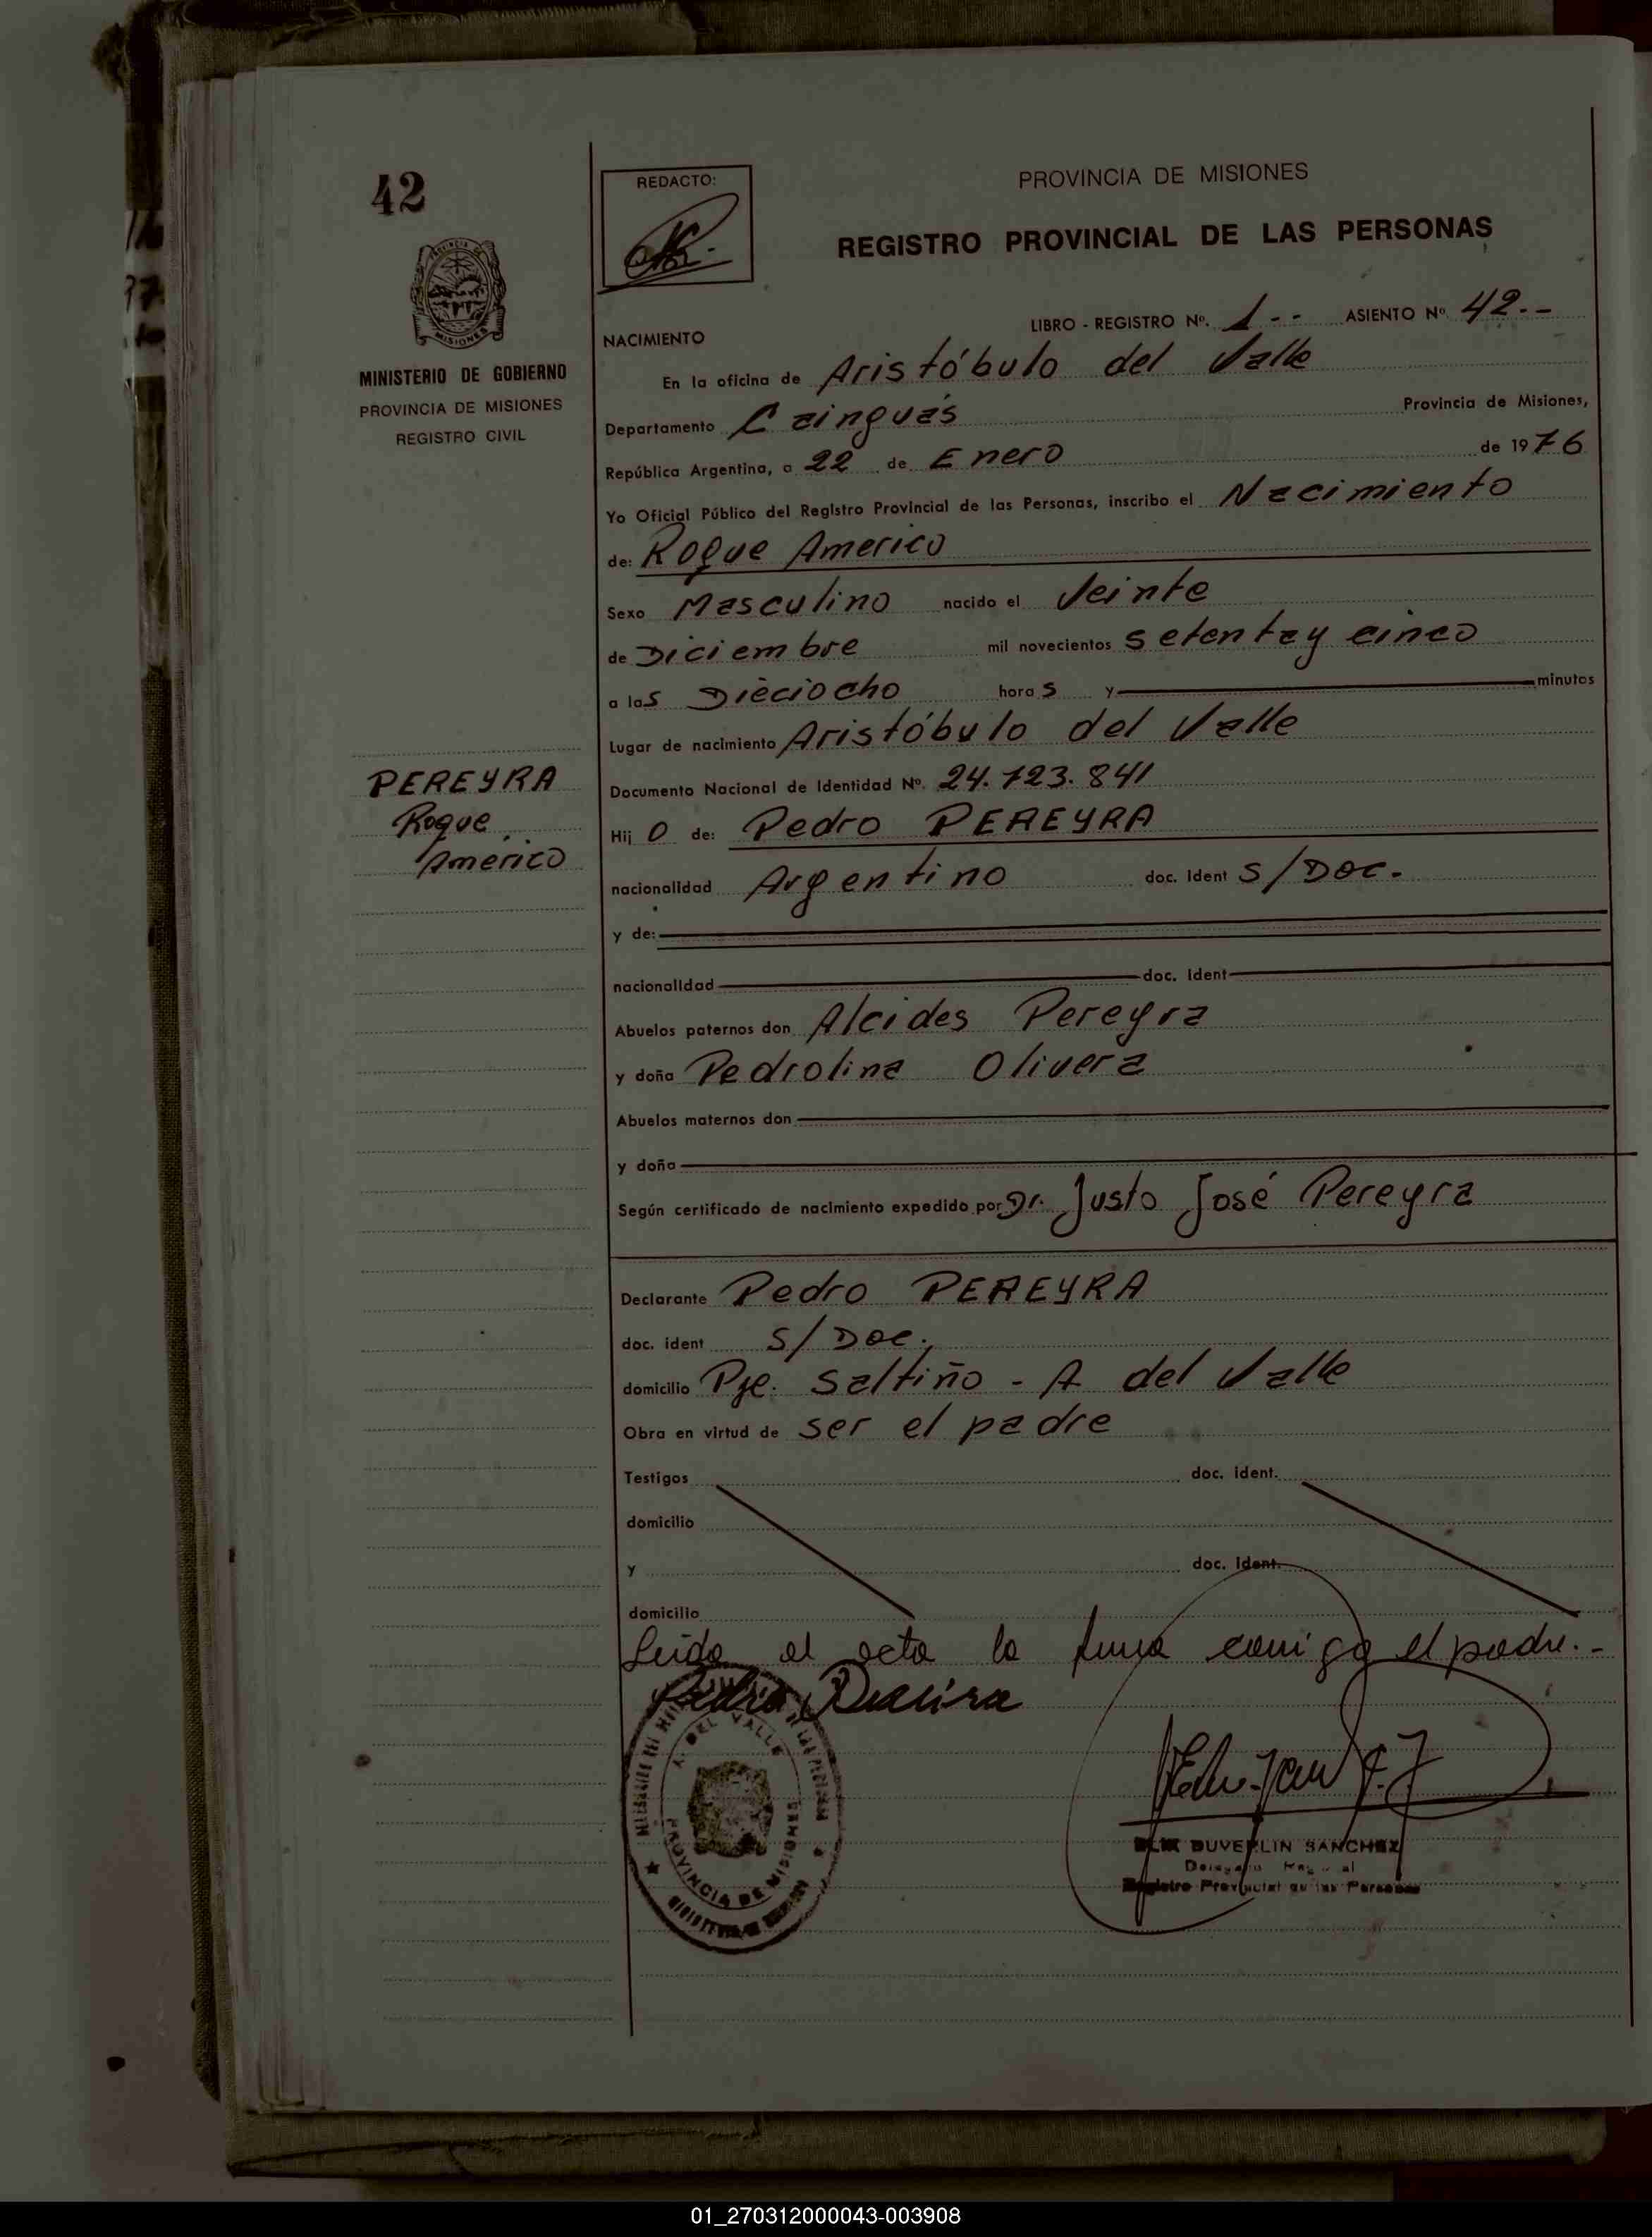 42
MINISTERIO DE GOBIERNO
PROVINCIA DE MISIONES
REGISTRO CIVIL
PEREYRA
Roque
Americo
REDACTO:
PROVINCIA DE MISIONES
REGISTRO PROVINCIAL DE LAS PERSONAS
LIBRO - REGISTRO Nº. 1-- ASIENTO Nº 42.-
NACIMIENTO
En la oficina de Aristóbulo del Valle
Departamento Cainguás Provincia de Misiones,
República Argentina, a 22 de Enero de 1976
Yo Oficial Público del Registro Provincial de las Personas, inscribo el Nacimiento
de: Roque Americo
Sexo Masculino nacido el Veinte
de Diciembre mil novecientos setenta y cinco
a las Dieciocho horas y minutos
Lugar de nacimiento Aristóbulo del Valle
Documento Nacional de Identidad Nº. 24.723.841
Hijo de: Pedro PEREYRA
nacionalidad Argentino doc. Ident S/Doc.
y de:
nacionalidad doc. Ident
Abuelos paternos don Alcides Pereyra
y doña Pedrolina Olivera
Abuelos maternos don
y doña
Según certificado de nacimiento expedido por Dr. Justo José Pereyra
Declarante Pedro PEREYRA
doc. ident S/Doc.
domicilio Pje. Saltiño - A del Valle
Obra en virtud de ser el padre
Testigos doc. ident.
domicilio
y doc. Ident.
domicilio
Leida el acta la firma conmigo el padre.-
Pedro
A. DEL VALLE
PROVINCIA DE MISIONES
DUVERLIN SANCHEZ
Registro Provincial de las Personas
01_270312000043-003908